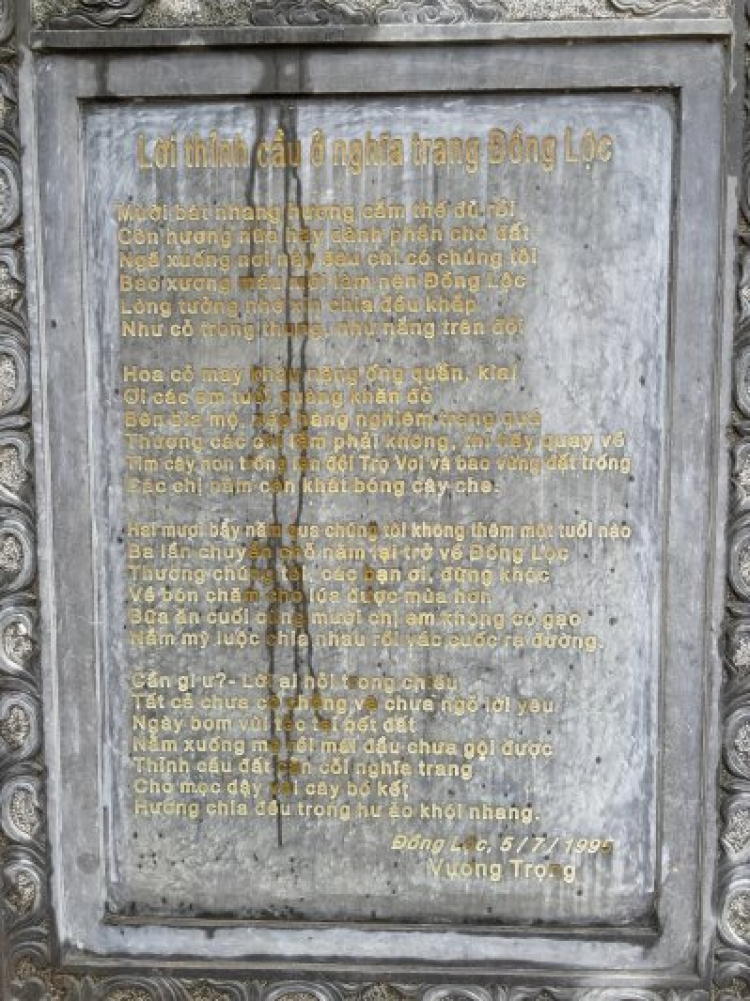 Lời thỉnh cầu ở nghĩa trang Đồng Lộc
Mười bát nhang hương cắm thế đủ rồi
Còn hương nữa hãy dành phần cho đất
Ngã xuống nơi này đâu chỉ có chúng tôi
Bao xương máu mới làm nên Đồng Lộc
Lòng tưởng nhớ xin chia đều khắp
Như cỏ trong thung, như nắng trên đồi
Hoa cỏ may khâu nặng ống quần, kìa!
Ơi các em tuổi quàng khăn đỏ
Bên bia mộ, xếp hàng nghiêm trang quá
Thương các chị lắm phải không, thì hãy quay về
Tìm cây non trồng lên đồi Trọ Voi và bao vùng đất trống
Các chị nằm còn khát bóng cây che.
Hai mươi bảy năm qua chúng tôi không thêm một tuổi nào
Ba lần chuyển chỗ nằm lại trở về Đồng Lộc
Thương chúng tôi, các bạn ơi, đừng khóc
Về bón chăm cho lúa được mùa hơn
Bữa ăn cuối cùng mười chị em không có gạo
Nắm mỳ luộc chia nhau rồi vác cuốc ra đường.
Cần gì ư?- Lời ai hỏi trong chiều
Tất cả chưa có chồng và chưa ngỏ lời yêu
Ngày bom vùi tóc tai bết đất
Nằm xuống mộ rồi mái đầu chưa gội được
Thỉnh cầu đất cằn cỗi nghĩa trang
Cho mọc dậy vài cây bồ kết
Hương chia đều trong hư ảo khói nhang.
Đồng Lộc, 5/7/1995
Vương Trọng